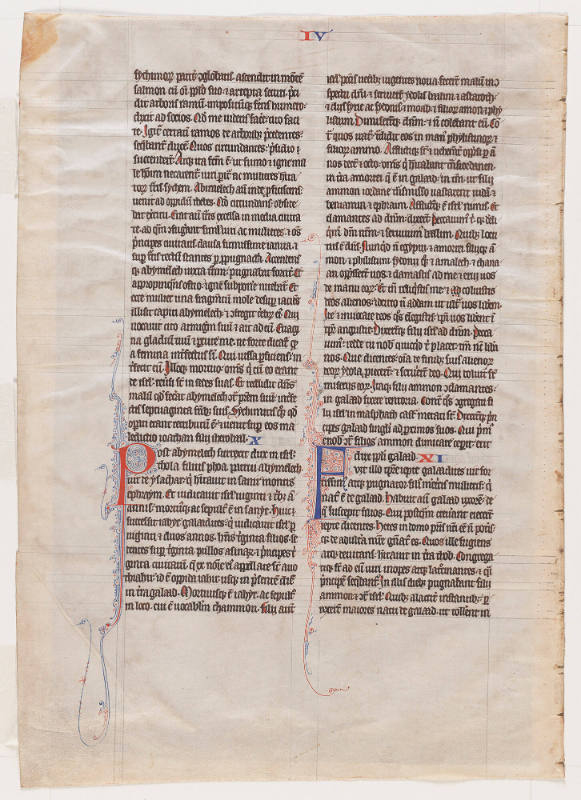 IV
sychimorum pariter conglobatos. ascendit in monte
salmon cum omni populo suo. et arrepta securi preci
dit arboris ramum. impositumque ferens humero
dixit ad socios. Quod me videtis facere cito faci
te. Igitur certatim ramos de arboribus precidentes.
sequebantur ducem. Qui circumdantes presidium
succenderunt. Atque ita factum est ut fumo et igne mil
le homines necarentur viri pariter ac mulieres habita
torum turris sychem. Abimelech autem inde proficiscens
venit ad oppidum thebes. Quod circumdans obside
bat exercitu. Erat autem turris excelsa in media civita
te ad quam confugerant simul viri ac mulieres et omnes
principes civitatis clausa firmissime ianua. et
super turris tectum stantes per propugnacula. Accedens
que abymelech iuxta turrim pugnabat fortiter. Et
appropinquans ostio. ignem supponere nitebatur. Et
ecce mulier una fragmen mole desuper iaciens
illisit capiti abymelech. et confregit cerebrum eius. Qui
vocavit cito armigerum suum et ait ad eum. Evagi
na gladium tuum et percute me. ne forte dicatur quod
a femina interfectus sim. Qui iussa perficiens in
terfecit eum. Illoque mortuo omnes qui cum eo erant
de israel reversi sunt in sedes suas. Et reddidit deus
malum quod fecerat abymelech contra patrem suum. inter
fectis septuaginta fratribus suis. Sychimitis quoque quod
operati erant retributum est. et venit super eos ma
ledictio ioathan filii ierobaal. X
Post abymelech surrexit dux in israel
thola filius phoa. patrui abymelech
vir de ysachar qui habitavit in samir montis
ephraym. Et iudicavit israel viginti et tribus
annis. mortuusque ac sepultus est in samyr. Huic
successit iahyr galaadites. qui iudicavit israel per
viginti et duos annos. habens triginta filios. se
dentes super triginta pullos asinarum et principes
ginta civitatum que ex nomine eius appellate sunt avo
thiahir. id est oppida iahir. usque in presentem diem
in terra galaad. Mortuusque est iahyr. ac sepultus
in loco. cui est vocabulum chammon. filii autem
israel peccatis veteribus iungentes nova. fecerunt malum in con
spectu domini. et servierunt ydolis baalim et astaroth
et diis syrie ac sydonis et moab et filiorum amon et phy
listiim. Dimiseruntque dominum. et non colebant eum. Con
tra quos iratus tradidit eos in manus phylistinorum et
filiorum ammon. Afflictique sunt et vehementer oppressi per an
nos decem et octo. omnes qui habitabant trans iordanem
in terra amorrei qui est in galaad. in tantum ut filii
ammon iordane transmisso vastarent iudam et
beniamin et ephraim. Afflictusque est israel nimis. Et
clamantes ad dominum dixerunt. Peccavimus tibi. quia dereli
quimus dominum deum nostrum. et servivimus baalim. Quibus locu
tus est dominus. Nunquid non egyptii et amorrei filiique am
mon et philistiim sydonii quoque et amalech et chana
an oppresserunt vos. et clamastis ad me et erui vos
de manu eorum. Et tamen reliquistis me. et coluistis
deos alienos. idcirco non addam ut ultra vos liberem.
Ite et invocate deos quos elegistis. ipsi vos liberent in
tempore angustie. Dixeruntque filii israel ad dominum. Pecca
vimus. redde tu nobis quicquid tibi placet. tantum nunc libera
nos. Que dicentes. omnia de finibus suis alienorum
deorum ydola proiecerunt. et servierunt deo. Qui doluit super
miseriis eorum. Itaque filii ammon conclamantes.
in galaad fixere tentoria. Contra quos congregati fi
lii israel in masphath castrametati sunt. Dixeruntque prin
cipes galaad singuli ad proximos suos. Qui primus
e nobis contra filios ammon dimicare ceperit. erit
dux populi galaad. XI
Fuit illo tempore iepte galaadites vir for
tissimus atque pugnator. filius meretricis mulieris. qui
natus est de galaad. Habuit autem galaad uxorem. de
qua suscepit filios. Qui postquam creverant eiecerunt
iepte dicentes. Heres in domo patris nostri esse non poteris.
quia de adultera matre generatus es. Quos ille fugiens
atque devitans. habitavit in terra tob. Congrega
tique sunt ad eum viri inopes atque latrocinantes. et quasi
principem sequebantur. In illis diebus pugnabant filii
ammon contra israel. Quibus acriter instantibus. per
rexerunt maiores natu de galaad. ut tollerent in